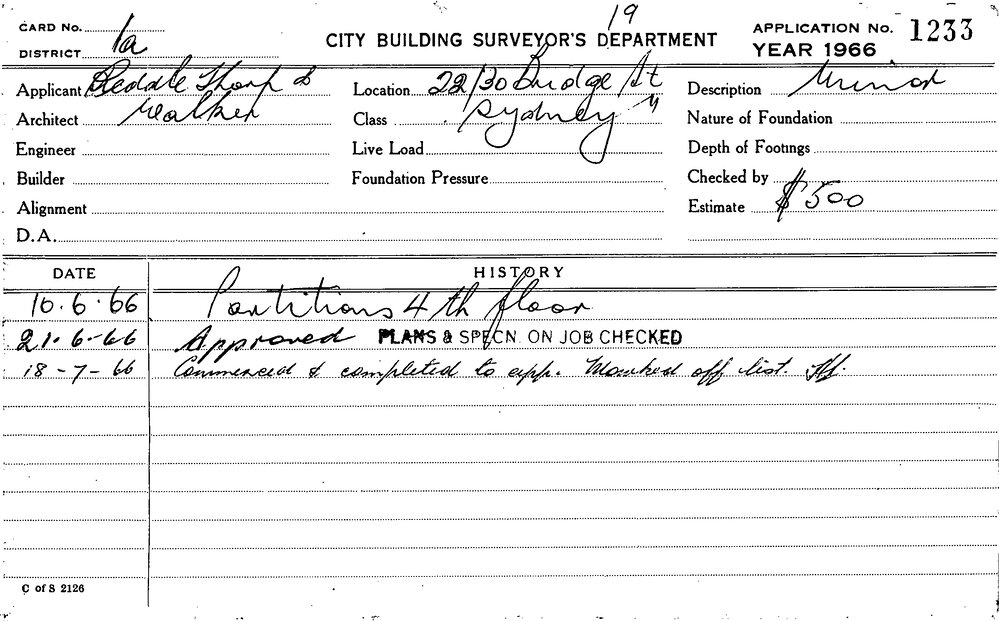 19
CARD No. 1a
DISTRICT
CITY BUILDING SURVEYOR'S DEPARTMENT
APPLICATION No. 1233
YEAR 1966
Applicant Peddle Thorp &
Architect Walker
Engineer
Builder
Alignment
D.A.
Location 22/30 Bridge St
Class Sydney
Live Load
Foundation Pressure
Description Minor
Nature of Foundation
Depth of Footings
Checked by
Estimate $500
DATE HISTORY
10.6.66 Partitions 4th floor
21.6.-66 Approved PLANS & SPECN. ON JOB CHECKED
18-7-66 Commenced & completed to app. Marked off list.
C of S 2126